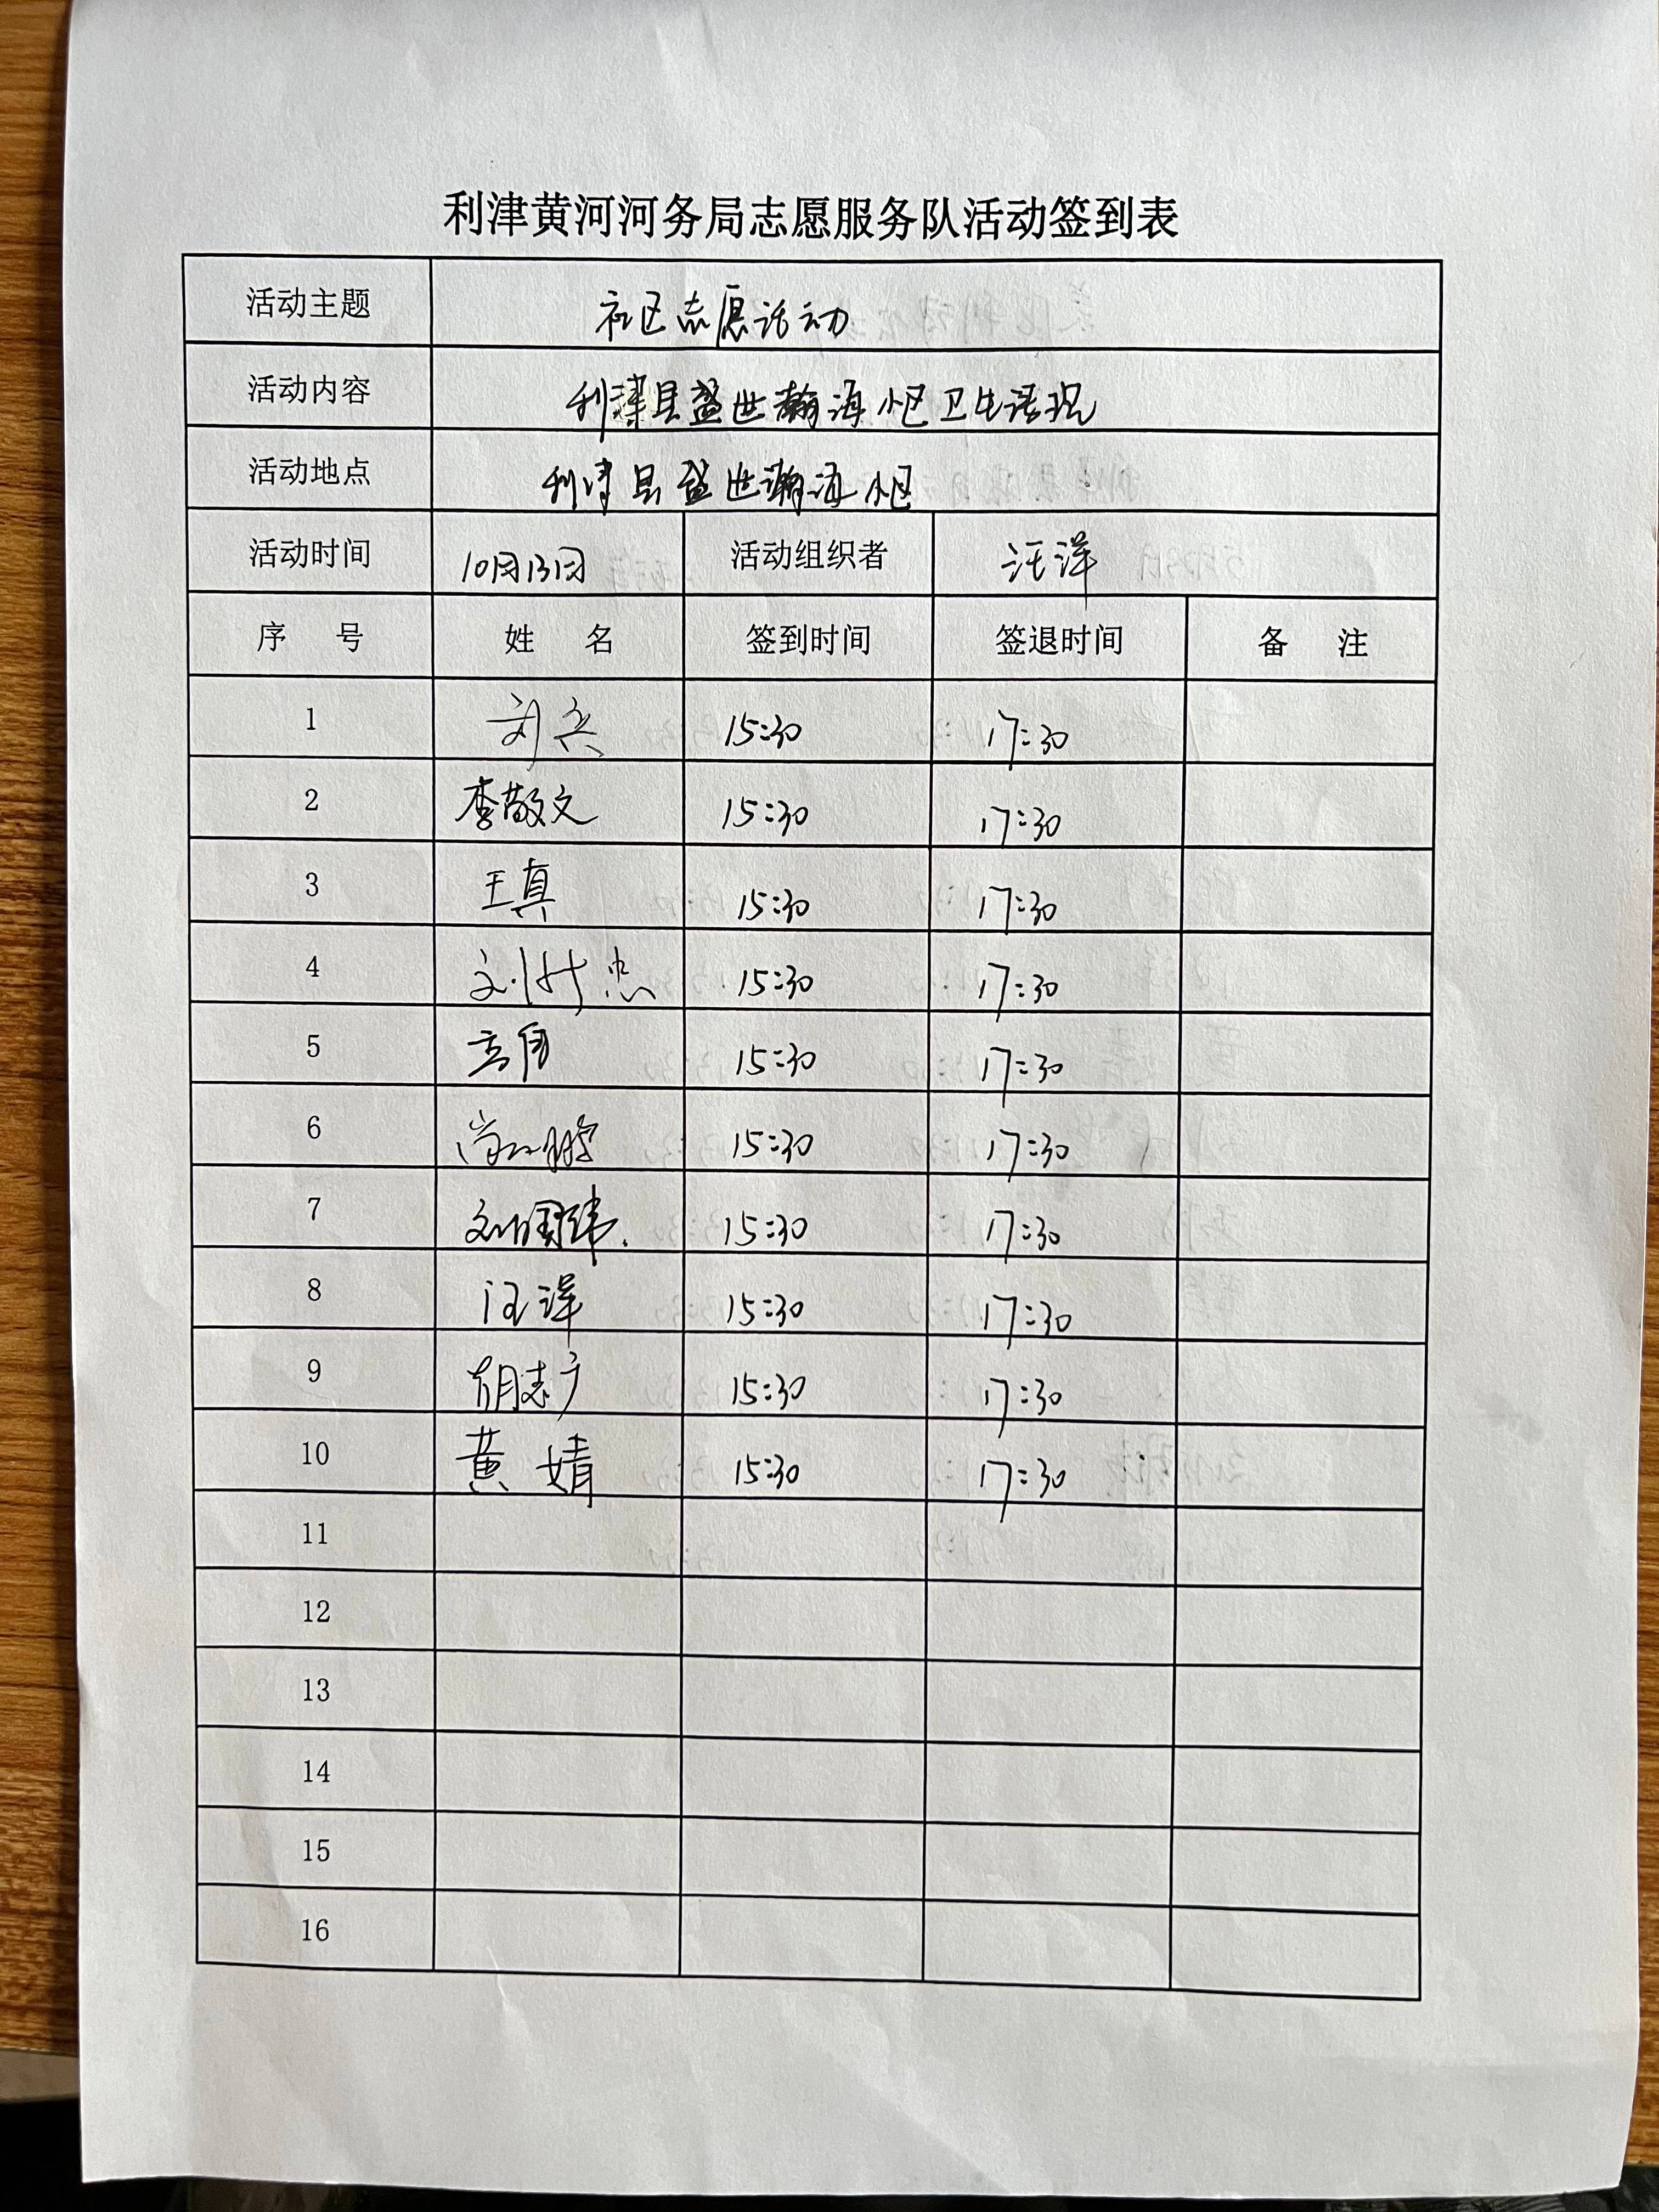 利津黄河河务局志愿服务队活动签到表
活动主题 社区志愿活动
活动内容 利津县盛世瀚海小区卫生清理
活动地点 利津县盛世瀚海小区
活动时间 10月13日 活动组织者 汪洋
序号 姓名 签到时间 签退时间 备注
1 刘兵 15:30 17:30
2 李敬文 15:30 17:30
3 王真 15:30 17:30
4 15:30 17:30
5 15:30 17:30
6 15:30 17:30
7 刘国玮 15:30 17:30
8 汪洋 15:30 17:30
9 胡志广 15:30 17:30
10 黄婧 15:30 17:30
11
12
13
14
15
16